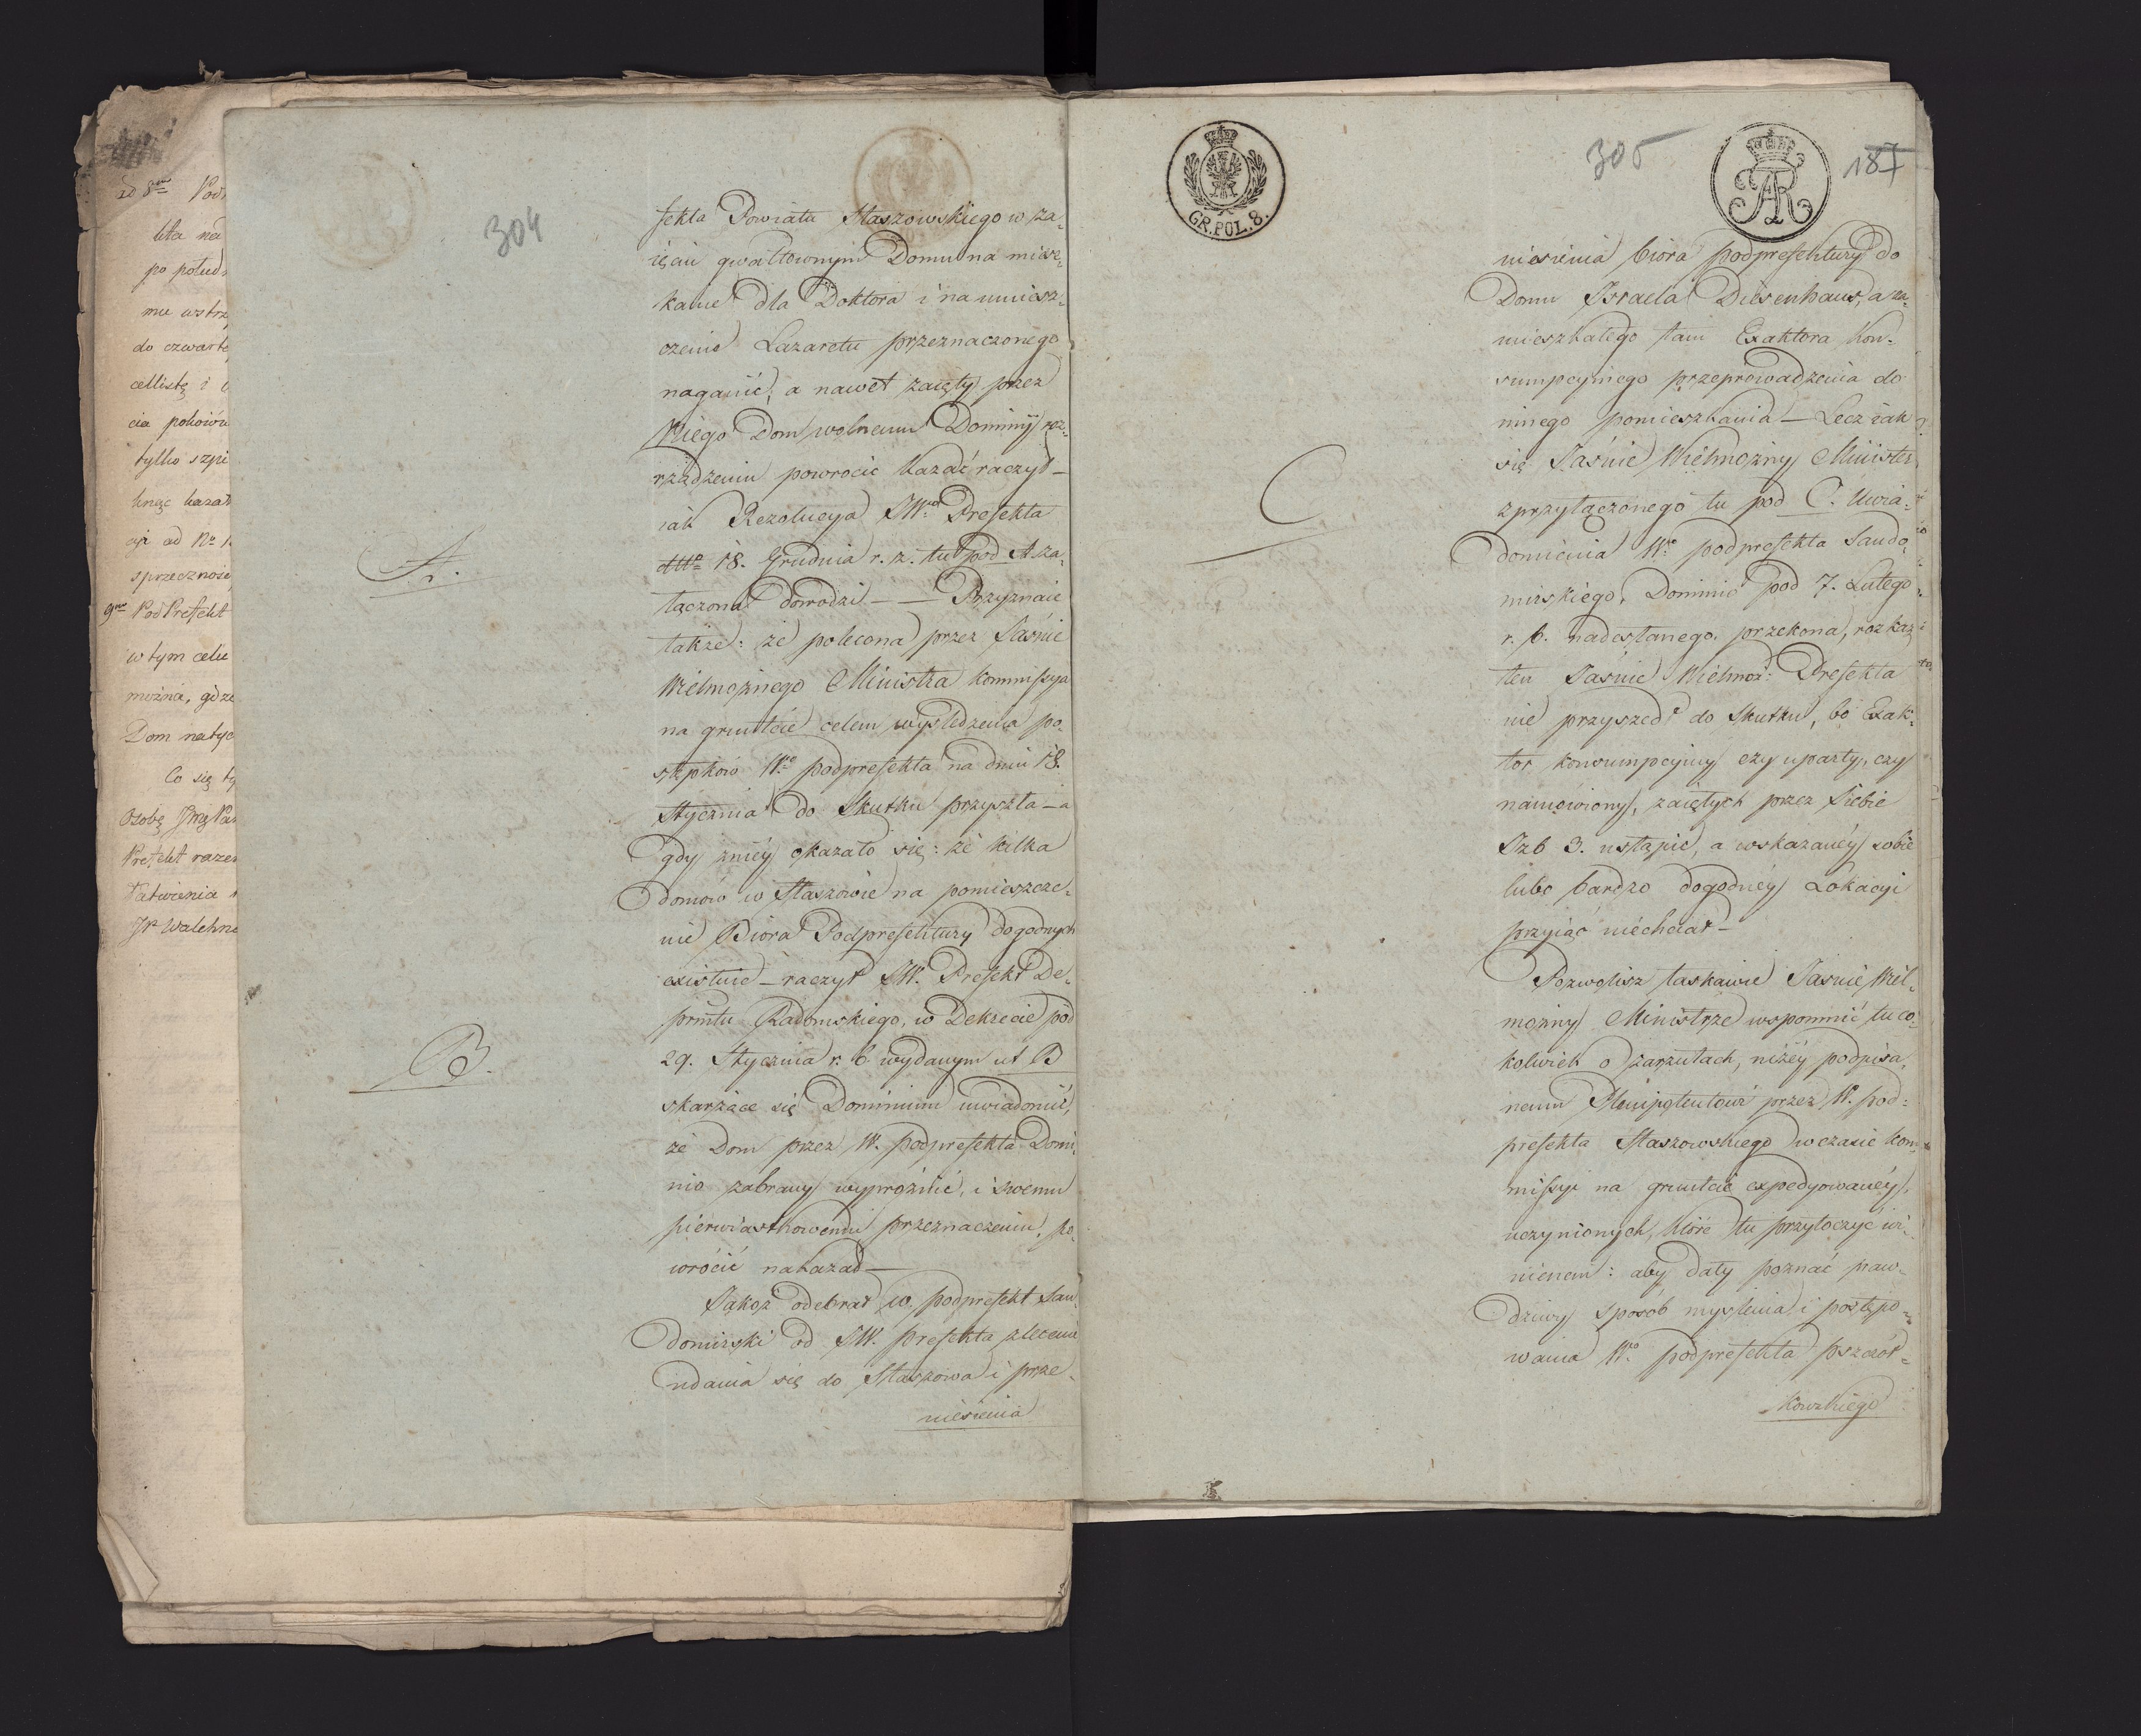 ad 8um Pod
kta na
po połud
mu wstrz
do czwarte
cellistę i
cia pokoiów
tylko szpi
knąc kazał
cji ad No 1
sprzeczność
9no PodPrefekt
w tym celu
można, gdze
Dom natyc
Co się ty
Osobę
Prefekt razem
łatwienia
Jr Walchno
304
fekta Powiatu Staszowskiego w za-
ięciu gwałtownym Domu na miesz-
kanie dla Doktora i na umiesz-
czenie Lazaretu przeznaczonego
naganić, a nawet zaięty przez
Niego Dom wolnemu Dominij roz-
rządzeniu powrocić kazać raczył –
iak Rezolucya JWgo Prefekta
18. Grudnia r. z. tu pod A za-
łączona dowodzi – – Przyznaie
także: że polecona przez Jaśnie
Wielmożnego Ministra kommissya
na gruntcie celem wyśledzenia po-
stępków Wgo podprefekta na dniu 18.
Stycznia do Skutku przyszła – a
gdy zniéy okazało się: że kilka
domów w Staszowie na pomieszcze-
nie Biora Podprefektury dogodnych
existuie – raczył JW. Prefekt De-
prmtu Radomskiego, w Dekrecie pod
29. Stycznia r. b. wydanym ut B
skarżące się Dominium uwiadomić,
że Dom przez W. podprefekta Domi-
nio zabrany wypróżnić, i swemu
pierwiastkowemu przeznaczeniu, po-
wrócić nakazał –
Jakoż odebrał W. podprefekt San-
domirski od JW. prefekta zlecenie
udania się do Staszowa i prze-
niesienia
A.
B.
GR.POL.8.
305
187
AR
niesienia biora podprefektury do
Domu Israela Diesenhaus, a za-
mieszkałego tam Exaktora kon-
sumpcyjnego przeprowadzenia do
innego pomieszkania – Lecz iak
się Jaśnie Wielmożny Minister
z przyłączonego tu pod C. Uwia-
domienia Wgo podprefekta Sando-
mirskiego, Dominio pod 7. Lutego
r. b. nadesłanego przekona, rozkaz
ten Jaśnie Wielmoż: Prefekta
nie przyszedł do skutku, bo Exak-
tor konsumpcyjny czy uparty, czy
namówiony, zaiętych przez siebie
Izb 3. ustąpić, a wskazanéy sobie
lubo bardzo dogodnéy Lokacyi
przyiąć niechciał –
Pozwolisz łaskawie Jaśnie Wiel-
możny Ministrze wspomnić tu co-
kolwiek o zarzutach, niżéy podpisa-
nemu Plenipotentowi przez W. pod-
prefekta Staszowskiego w czasie kom-
missyi na gruntcie expedyowanéy,
uczynionych, które tu przytoczyć wi-
nienem: aby dały poznać praw-
dziwy sposób myslenia i postępo-
wania Wgo podprefekta Pszczół-
kowskiego
C